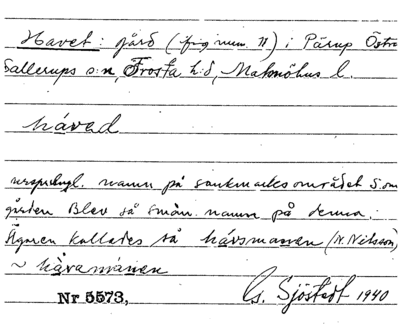 Havet: gård (fig num. 11) i Pärup Östra
Sallerups s:n, Frosta h:d, Malmöhus l.
håvad
urspringl. namn på sankmarksområdet S om
gården Blev så små n. namn på denna.
Ägaren kallades så håvsmannen (N. Nilsson)
~ håvamánen
Nr 5573, G. Sjöstedt 1940